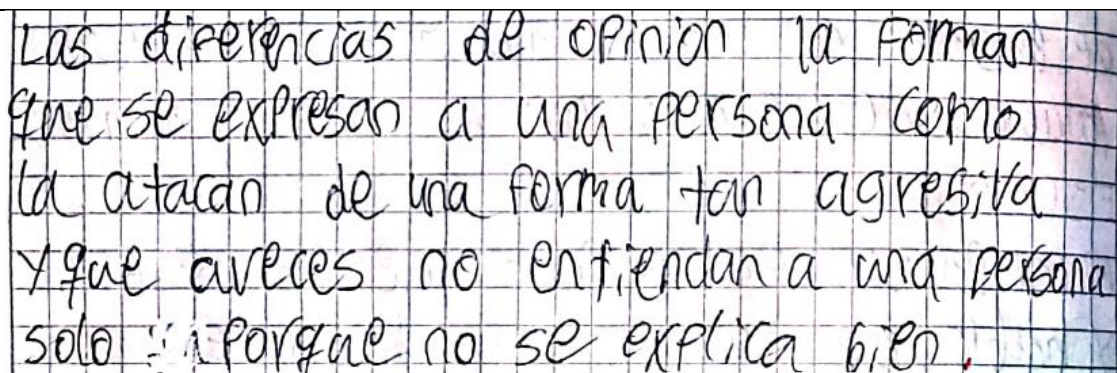 Las diferencias de opinion la forman
que se expresan a una persona como
la atacan de una forma tan agresiva
y que aveces no entiendan a una persona
solo porque no se explica bien.